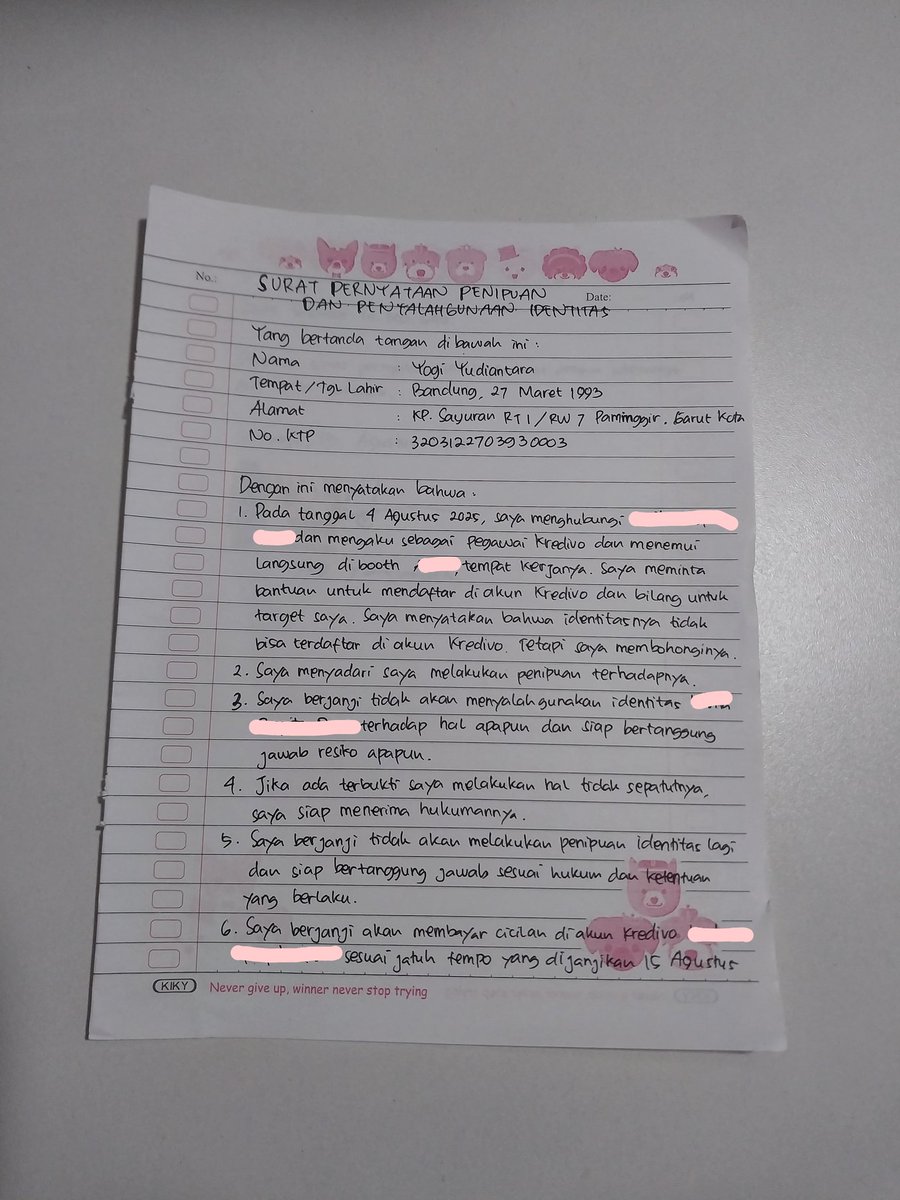 No.:
Date:
SURAT PERNYATAAN PENIPUAN
DAN PENYALAHGUNAAN IDENTITAS
Yang bertanda tangan dibawah ini :
Nama : Yogi Yudiantara
Tempat/Tgl Lahir : Bandung, 27 Maret 1993
Alamat : KP. Sayuran RT 1 / RW 7 Paminggir. Garut Kota
No. KTP : 3203122703930003
Dengan ini menyatakan bahwa :
1. Pada tanggal 4 Agustus 2025, saya menghubungi
dan mengaku sebagai pegawai Kredivo dan menemui
Langsung di booth , tempat kerjanya. Saya meminta
bantuan untuk mendaftar di akun Kredivo dan bilang untuk
target saya. Saya menyatakan bahwa identitasnya tidak
bisa terdaftar di akun Kredivo. Tetapi saya membohonginya.
2. Saya menyadari saya melakukan penipuan terhadapnya.
3. Saya berjanji tidak akan menyalahgunakan identitas
terhadap hal apapun dan siap bertanggung
jawab resiko apapun.
4. Jika ada terbukti saya melakukan hal tidak sepatutnya,
saya siap menerima hukumannya.
5. Saya berjanji tidak akan melakukan penipuan identitas lagi
dan siap bertanggung jawab sesuai hukum dan ketentuan
yang berlaku.
6. Saya berjanji akan membayar cicilan di akun Kredivo
sesuai jatuh tempo yang dijanjikan 15 Agustus
KIKY Never give up, winner never stop trying